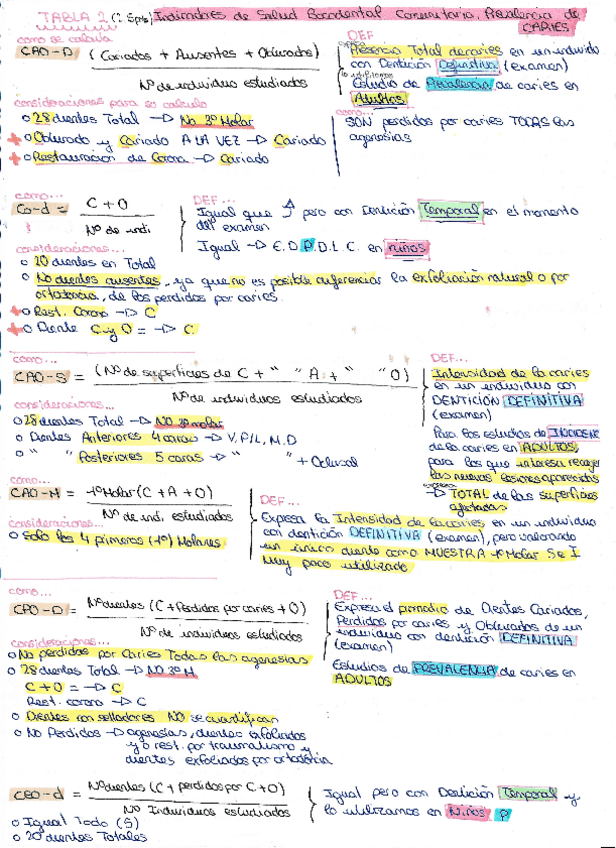 TABLA 2 (2 Spts) Indicadores de Salud Bucodental Comunitaria. Prevalencia de CARIES
como se calcula
CAO-D (Cariados + Ausentes + Obturados)
Nº de individuos estudiados
DEF
Presencia Total de caries en un individuo
con Dentición Definitiva (examen)
Estudio de Prevalencia de caries en
Adultos
como...
SON perdidos por caries TODAS las
agenesias
consideraciones para su calculo
28 dientes Total → No 3º Molar
Obturado y Cariado A LA VEZ → Cariado
Restauración de Corona → Cariado
como...
Co-d = C + O
Nº de indi
DEF...
Igual que pero con Dentición Temporal en el momento
del examen
Igual → E.D.P.D.L.C. en niños
consideraciones...
20 dientes en Total
No dientes ausentes, ya que no es posible diferenciar la exfoliación natural o por
ortodoncia, de los perdidos por caries.
Rest. Corona → C
Diente C y O = → C
como...
CAO-S = (Nº de superficies de C + " " A + " " O)
Nº de individuos estudiados
DEF...
Intensidad de la caries
en un individuo con
DENTICIÓN DEFINITIVA
(examen)
Para los estudios de
de la caries en ADULTOS,
para los que interesa recoger
las nuevas lesiones aparecidas
→ TOTAL de las superficies
afectadas
consideraciones...
28 dientes Total → NO 3º molar
Dientes Anteriores 4 caras → V, P/L, M, D
" " Posteriores 5 caras → " " + Oclusal
como...
CAO-M = 1º Molar (C + A + O)
Nº de indi. estudiados
consideraciones...
Solo los 4 primeros (1º) Molares
DEF...
Expresa la Intensidad de la caries en un individuo
con dentición DEFINITIVA (examen), pero valorando
un único diente como MUESTRA 1º Molar S e I
Muy poco utilizado
como...
CPO-D = Nº dientes (C + Perdidos por caries + O)
Nº de individuos estudiados
DEF...
Expresa el promedio de Dientes Cariados,
Perdidos por caries y Obturados de un
individuo con dentición DEFINITIVA
(examen)
Estudios de PREVALENCIA de caries en
ADULTOS
consideraciones...
No perdidos por Caries Todas las agenesias
28 dientes Total → NO 3º M
C + O = → C
Rest. corona → C
Dientes con selladores NO se cuantifican
No Perdidos → agenesias, dientes exfoliados
y/o rest. por traumatismo y
dientes exfoliados por ortodoncia
CEO-d = Nº dientes (C + perdidos por C + O)
Nº Individuos estudiados
Igual pero con Dentición Temporal y
lo utilizamos en Niños P
Igual Todo (S)
20 dientes Totales